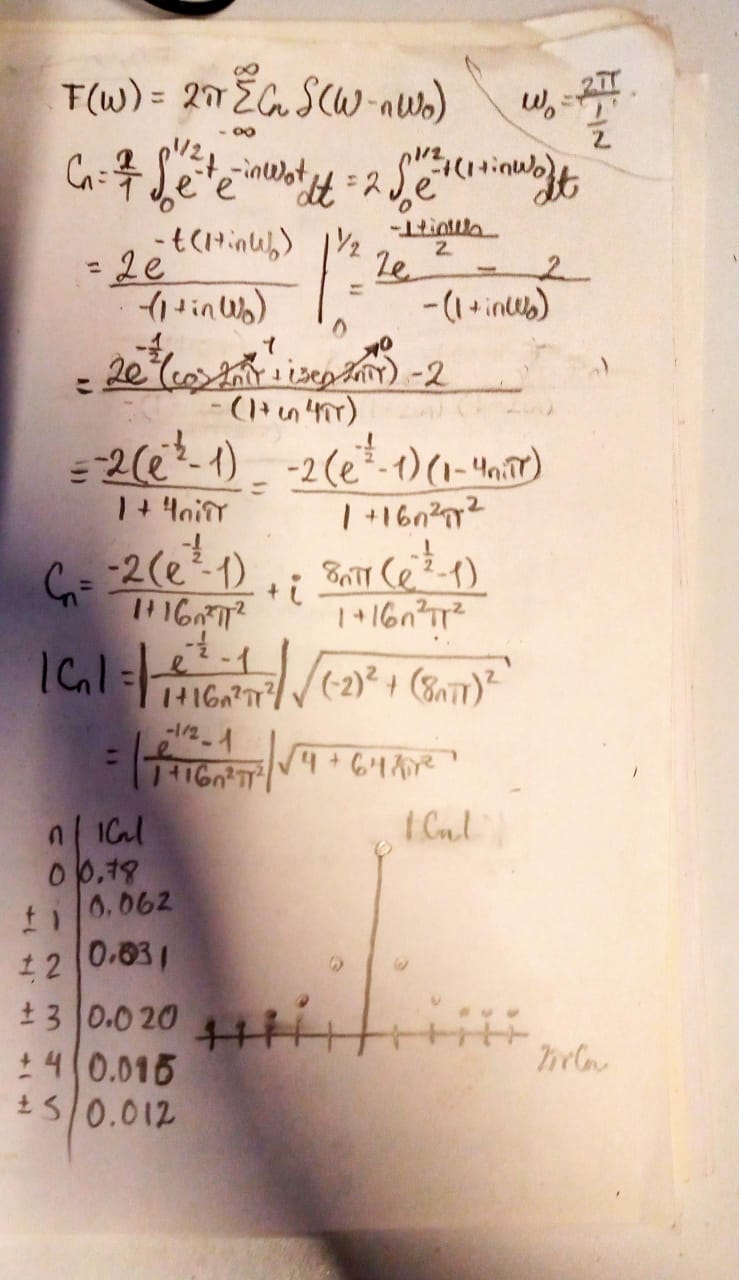 F(W) = 2π Σ_{-∞}^{∞} Cn δ(W-nW₀)   W₀ = 2π/(1/2)
Cn = 2/1 ∫₀^{1/2} e^{-t} e^{-inW₀t} dt = 2 ∫₀^{1/2} e^{-t(1+inW₀)} dt
= 2e^{-t(1+inW₀)} / -(1+inW₀) |₀^{1/2} = (2e^{-\frac{1+inW₀}{2}} - 2) / -(1+inW₀)
= (2e^{-1/2}(cos 2nπ + i sen 2nπ) - 2) / -(1+in4π)
= -2(e^{-1/2}-1) / (1+4niπ) = -2(e^{-1/2}-1)(1-4niπ) / (1+16n²π²)
Cn = -2(e^{-1/2}-1) / (1+16n²π²) + i 8nπ(e^{-1/2}-1) / (1+16n²π²)
|Cn| = |(e^{-1/2}-1) / (1+16n²π²)| √((-2)² + (8nπ)²)
= |(e^{-1/2}-1) / (1+16n²π²)| √(4 + 64n²π²)
n | |Cn|
0 | 0.78
±1 | 0.062
±2 | 0.031
±3 | 0.020
±4 | 0.015
±5 | 0.012
|Cn|